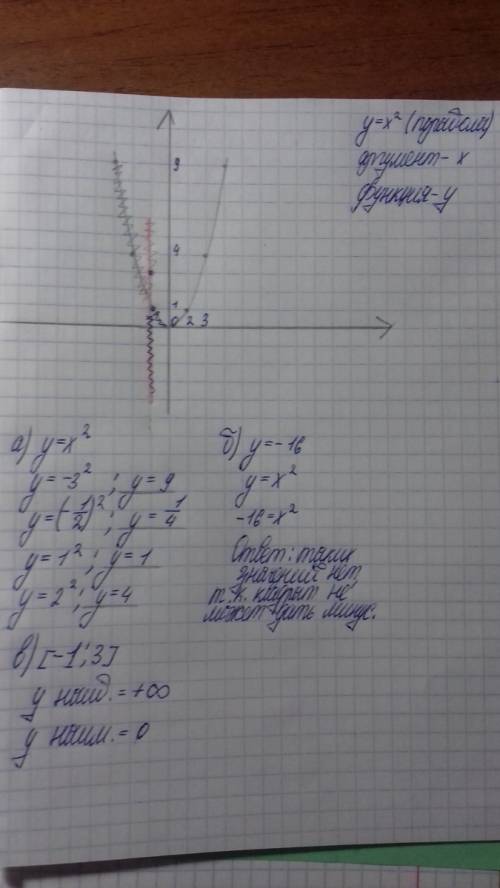 y=x² (парабола)
аргумент - x
функция - y
9
4
1
0 2 3
а) y=x²
y=-3² ; y=9
y=(-1/2)² ; y=1/4
y=1² ; y=1
y=2² ; y=4
б) y=-16
y=x²
-16=x²
Ответ: таких
значений нет,
т.к. квадрат не
может быть минус.
в) [-1;3]
y наиб.=+∞
y наим.=0